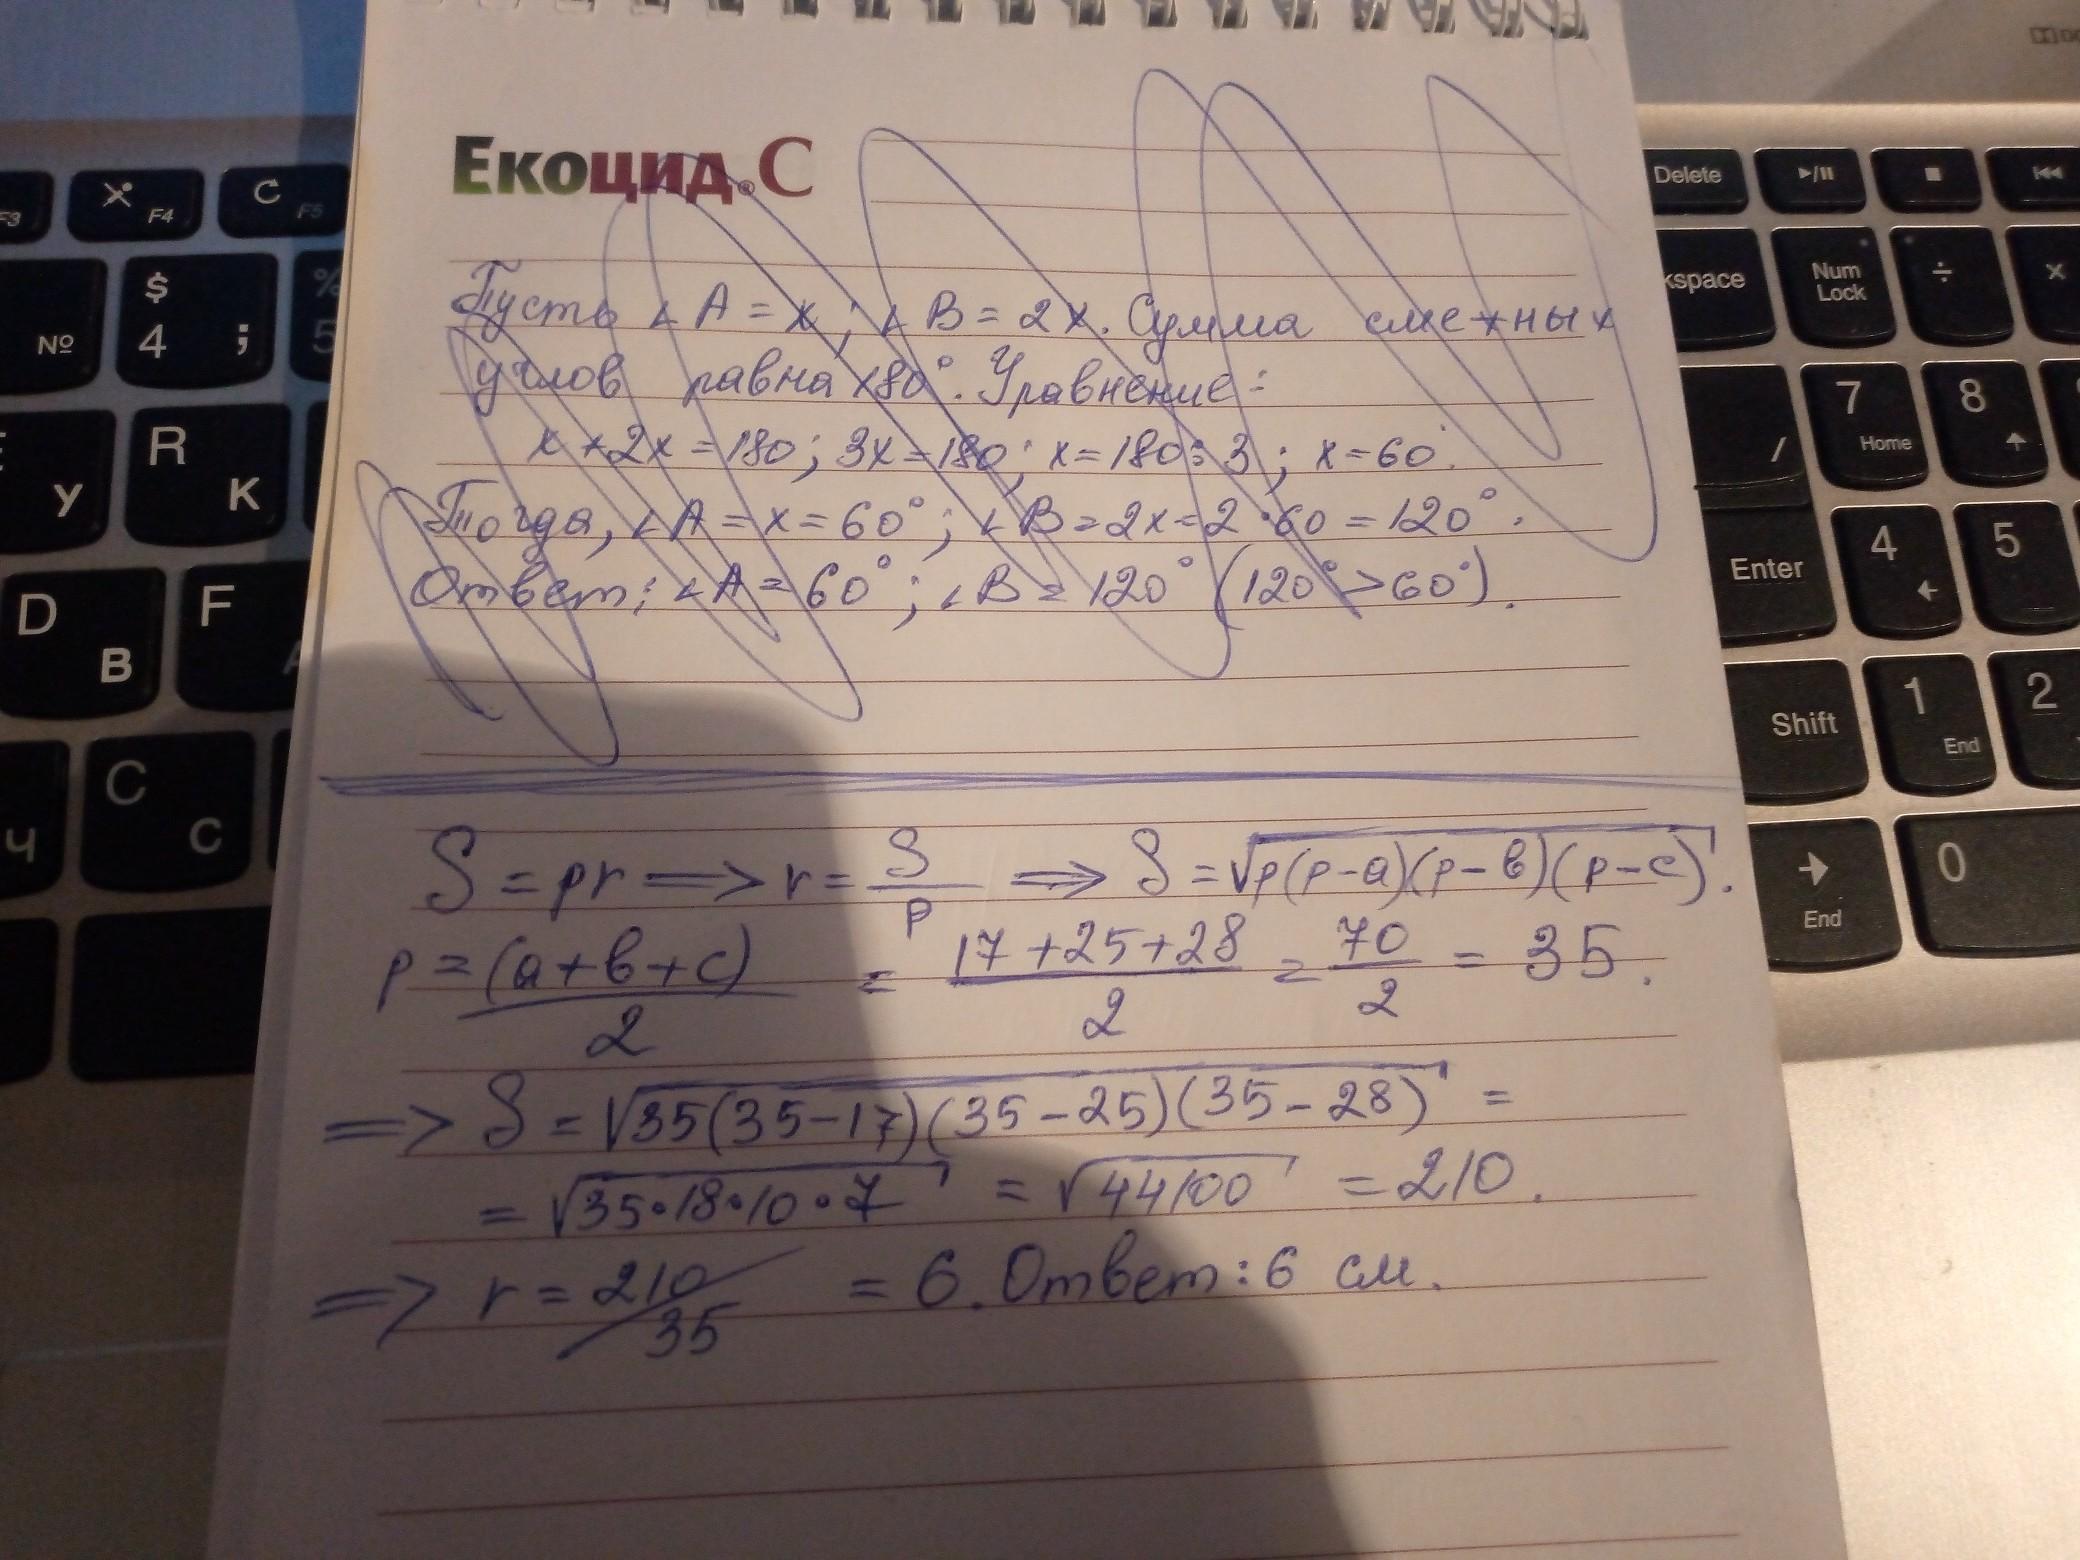 Екоцид.С
Пусть ∠A = x; ∠B = 2x. Сумма смежных
углов равна 180°. Уравнение:
x + 2x = 180; 3x = 180; x = 180 : 3; x = 60.
Тогда, ∠A = x = 60°; ∠B = 2x = 2·60 = 120°.
Ответ: ∠A = 60°; ∠B = 120° (120° > 60°).
S = pr ⟹ r = S/p ⟹ S = √p(p-a)(p-в)(p-c).
p = (a+в+c)/2 = 17+25+28/2 = 70/2 = 35.
⟹ S = √35(35-17)(35-25)(35-28) =
= √35·18·10·7 = √44100 = 210.
⟹ r = 210/35 = 6. Ответ: 6 см.
F3 F4 F5
Delete
№ $ 4 ; % 5
kspace Num Lock ÷ ×
У R К
/ 7 Home 8
D В F А
Enter 4 5
Ч C С
Shift 1 End 2
End 0